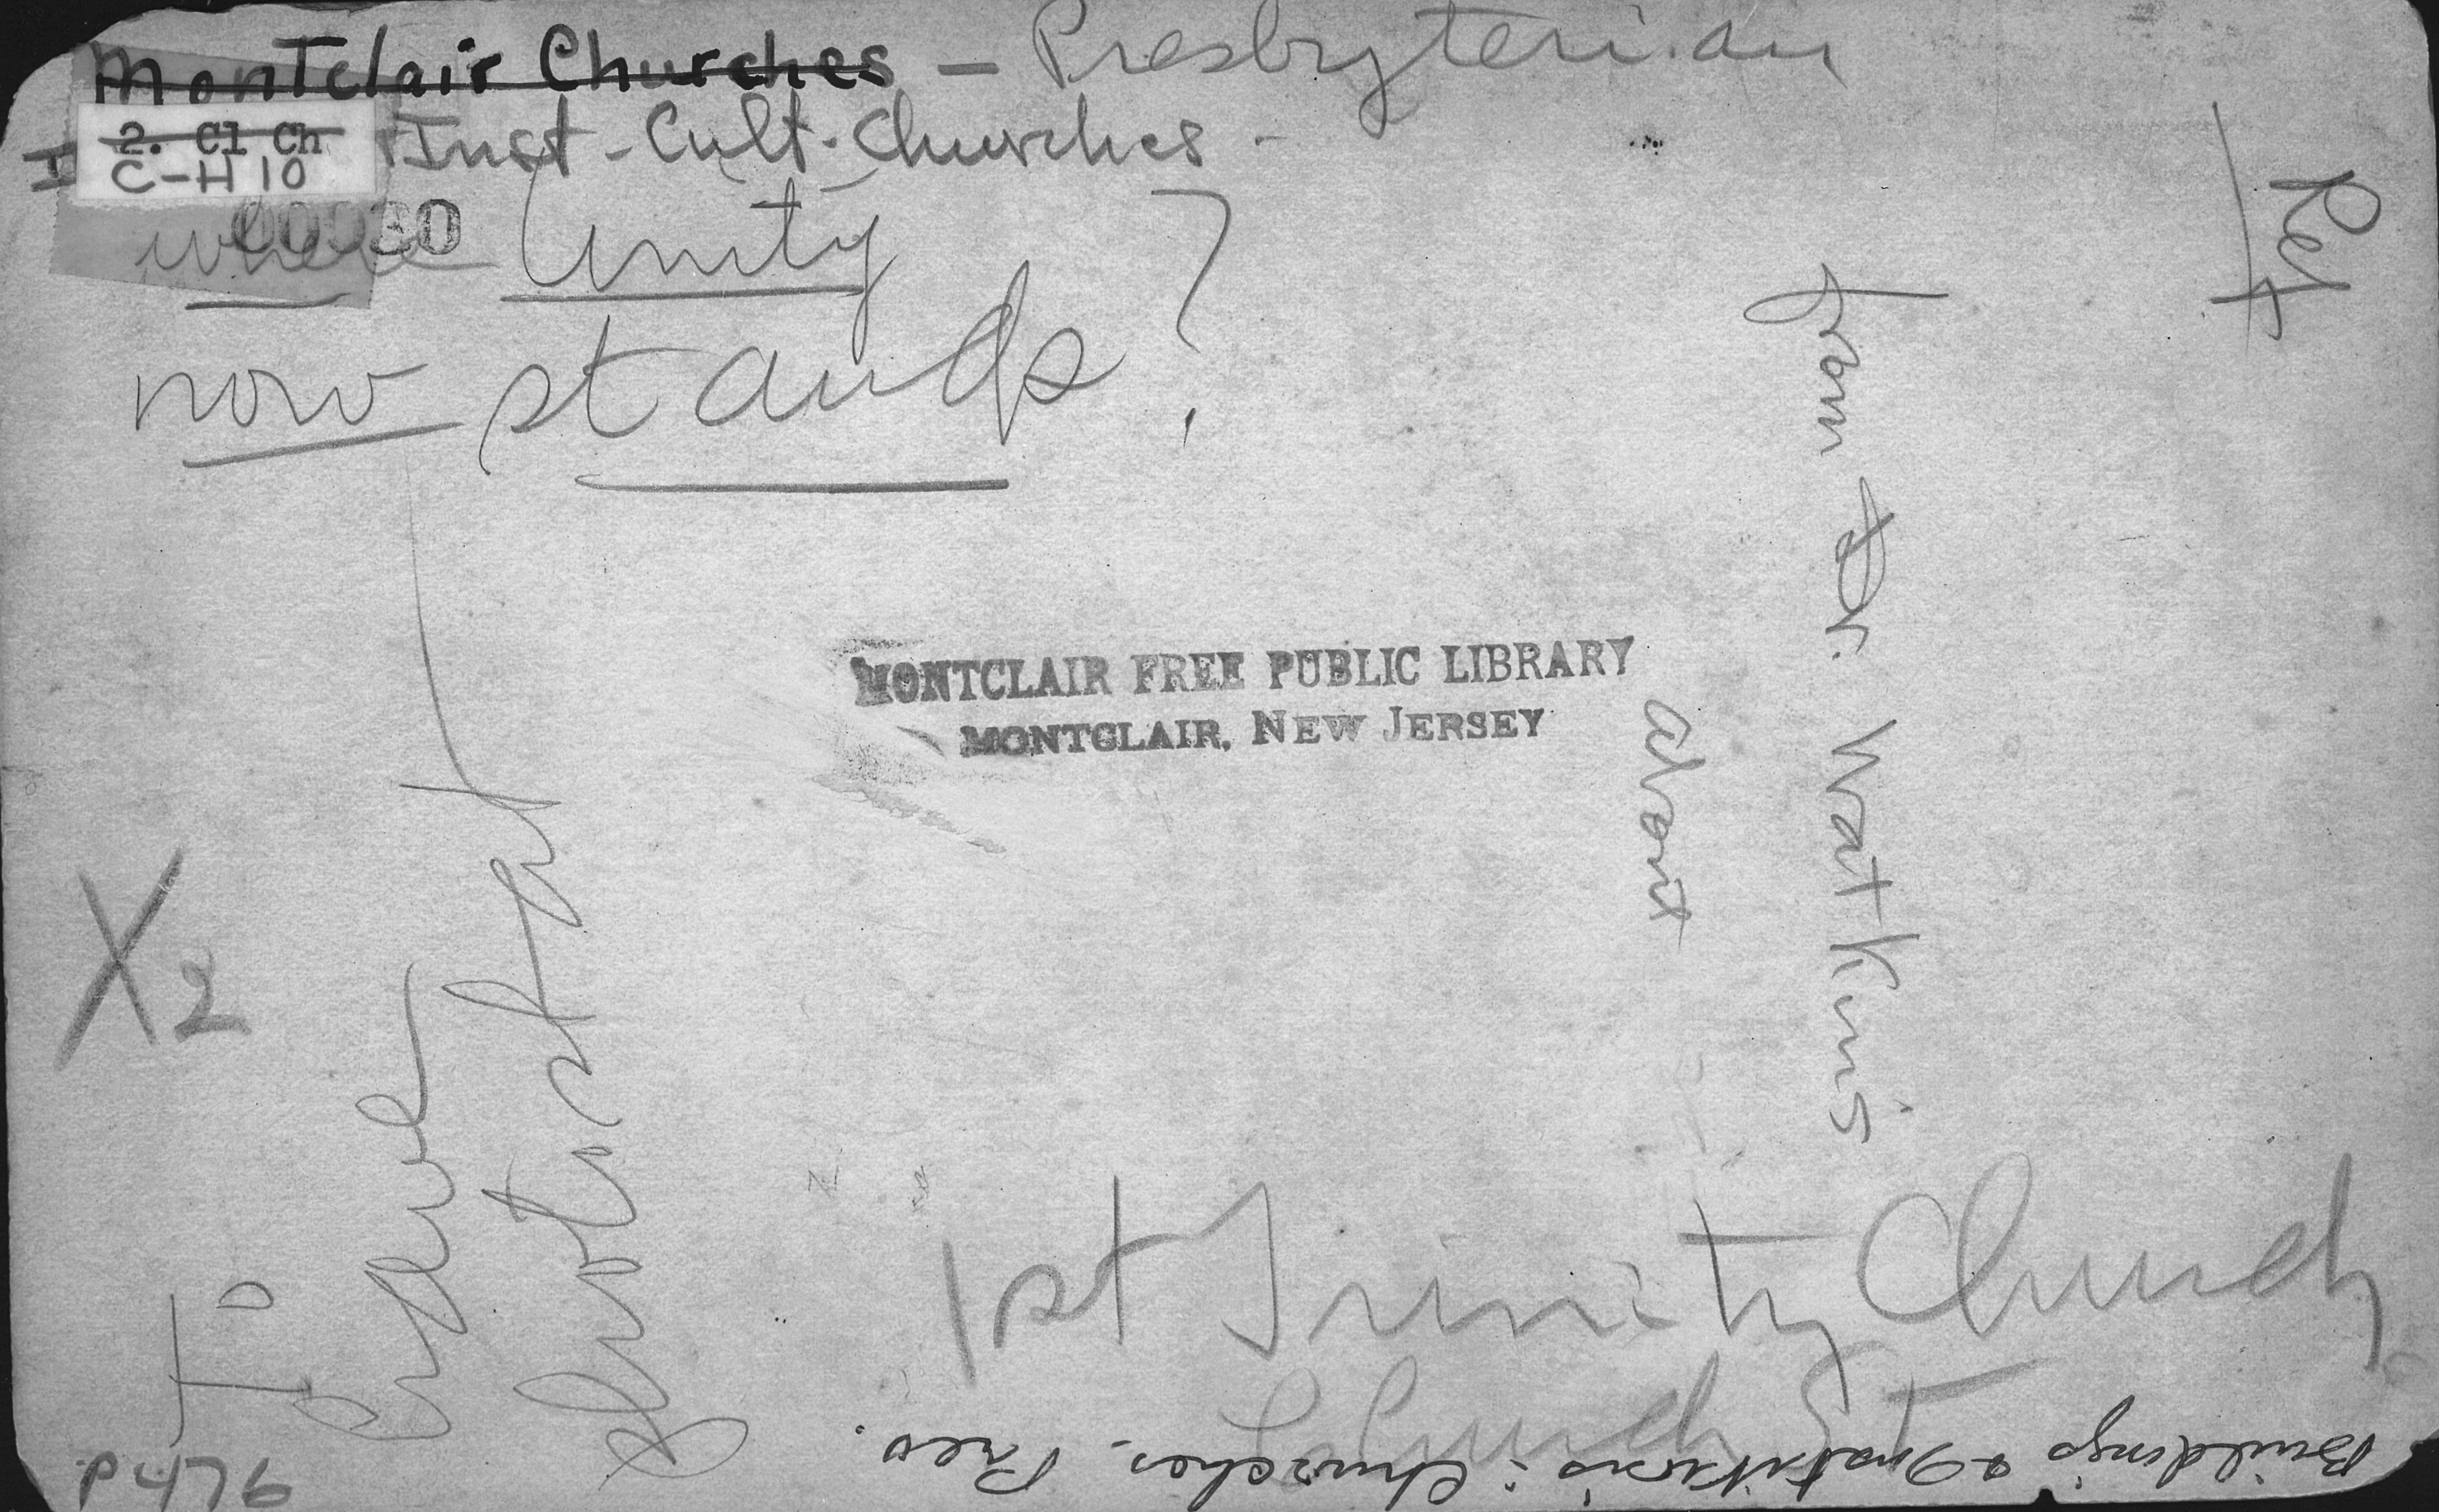 Montclair Churches – Presbyterian
2. Cl Ch
C-H 10
Inst - Cult. Churches -
30
where Unity
now stands?
Ret
from Dr. Watkins
about
MONTCLAIR FREE PUBLIC LIBRARY
MONTCLAIR, NEW JERSEY
X2
To
have
photostat
1st Trinity Church
Church ST
Buildings & Institutions: Churches. Pres.
P476